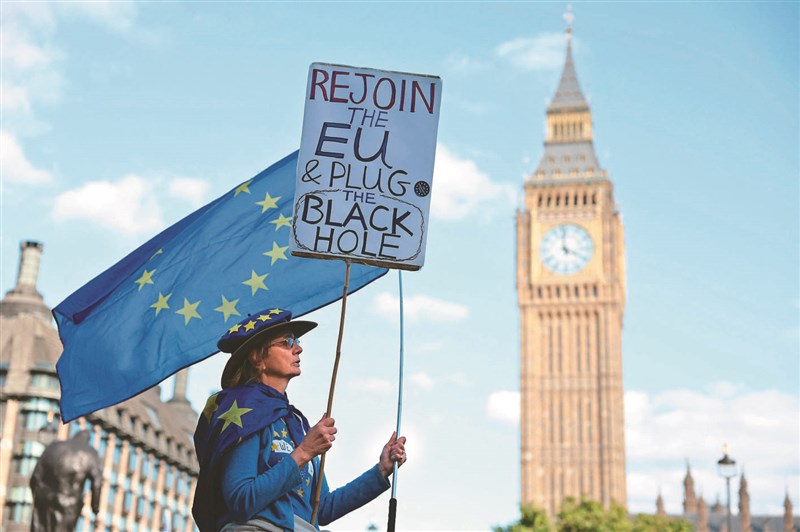 REJOIN
THE
EU
& PLUG
THE
BLACK
HOLE